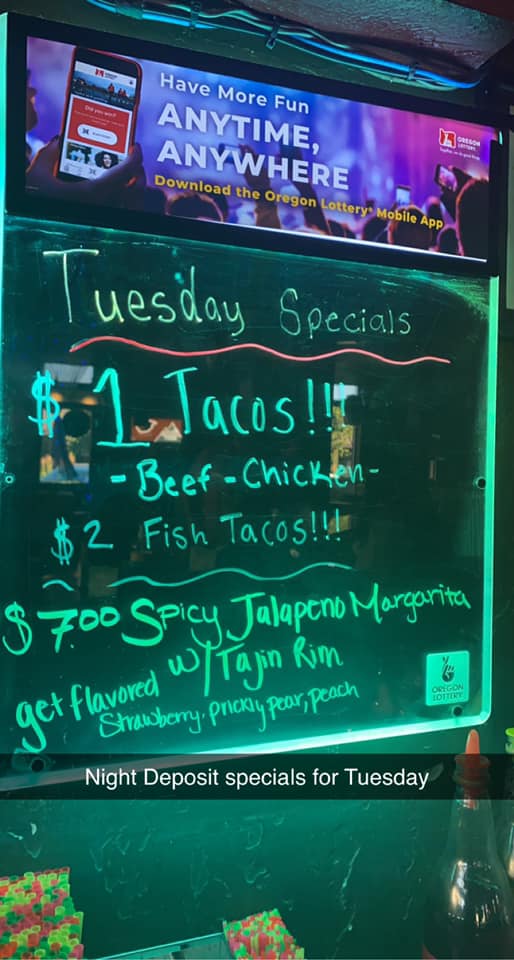 Have More Fun
ANYTIME,
ANYWHERE
Download the Oregon Lottery® Mobile App
OREGON
LOTTERY
Did you win?
Tuesday Specials
$1 Tacos!!!
-Beef-Chicken-
$2 Fish Tacos!!!
$7.00 Spicy Jalapeno Margarita
w/Tajin Rim
get flavored
Strawberry, prickly pear, peach
OREGON
LOTTERY
Night Deposit specials for Tuesday